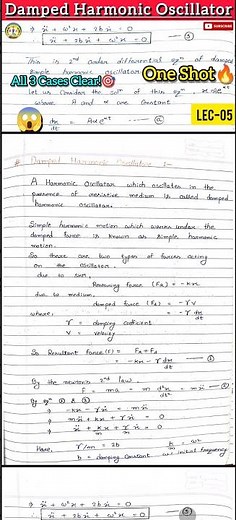 Damped Harmonic Oscillator
⇒ ẍ + ω²x + 2bẋ = 0
∴ ẍ + 2bẋ + ω²x = 0 — (3)
This is 2nd order differential eqn of damped
simple harmonic oscillation
All 3 Cases Clear!🎯
One Shot🔥
let us consider the soln of this eqn
where A and α are constant
LEC-05
dx/dt = Aαe^αt
# Damped Harmonic Oscillator :-
A Harmonic Oscillator which oscillates in the
presence of resistive medium is called damped
harmonic oscillator.
Simple harmonic motion which occurs under the
damped force is known as simple harmonic
motion.
So there are two types of forces acting
on the oscillator.
due to
Restoring force (FR) = -kx
due to medium,
damped force (Fd) = -γv
where, = -γ dx/dt
γ = damping cofficient
v = velocity
So Resultant force (F) = FR + Fd
= -kx - γ dx/dt — (1)
By the newton's 2nd law -
F = ma = m d²x/dt² = mẍ — (2)
By eqn (1) & (2)
⇒ -kx - γẋ = mẍ
⇒ mẍ + kx + γẋ = 0
⇒ ẍ + k/m x + γ/m ẋ = 0
Here, γ/m = 2b k/m = ω²
b = damping constant ω = initial frequency
⇒ ẍ + ω²x + 2bẋ = 0
∴ ẍ + 2bẋ + ω²x = 0 — (3)